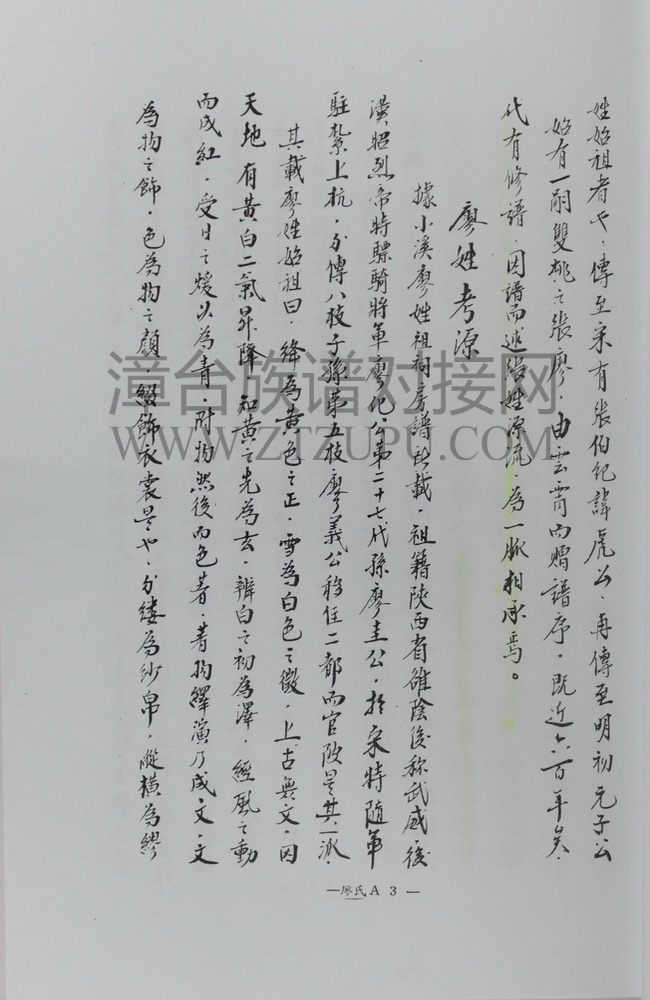 姓始祖者也。傳至宋有張伯紀諱虎公。再傳至明初元子公
始有一嗣雙祧之張廖。由雲霄而贈譜序。既近六百年矣。
代有修譜。因譜而述張姓源流。為一脈相承焉。
廖姓考源
據小溪廖姓祖祠房譜所載。祖籍陝西省雒陰後称武威後
漢昭烈帝時驃騎將軍廖化公第二十七代孫廖圭公。於宋時随軍
駐紮上杭。分傳八枝子孫第五枝廖義公移住二都而官陂是其一派。
其載廖姓始祖曰。絳為黄色之正。雪為白色之徵。上古無文。因
天地有黄白二氣昇降。知黄之先為玄。辨白之初為澤。經風之動
而成紅。受日之煖以為青。附物然後而色著。著物繹演乃成文。文
為物之飾。色為物之顏。綴飾衣裳是也。分縷為紗帛。縱横為繆
—廖氏 A 3 —
漳台族谱对接网
WWW.ZTZUPU.COM